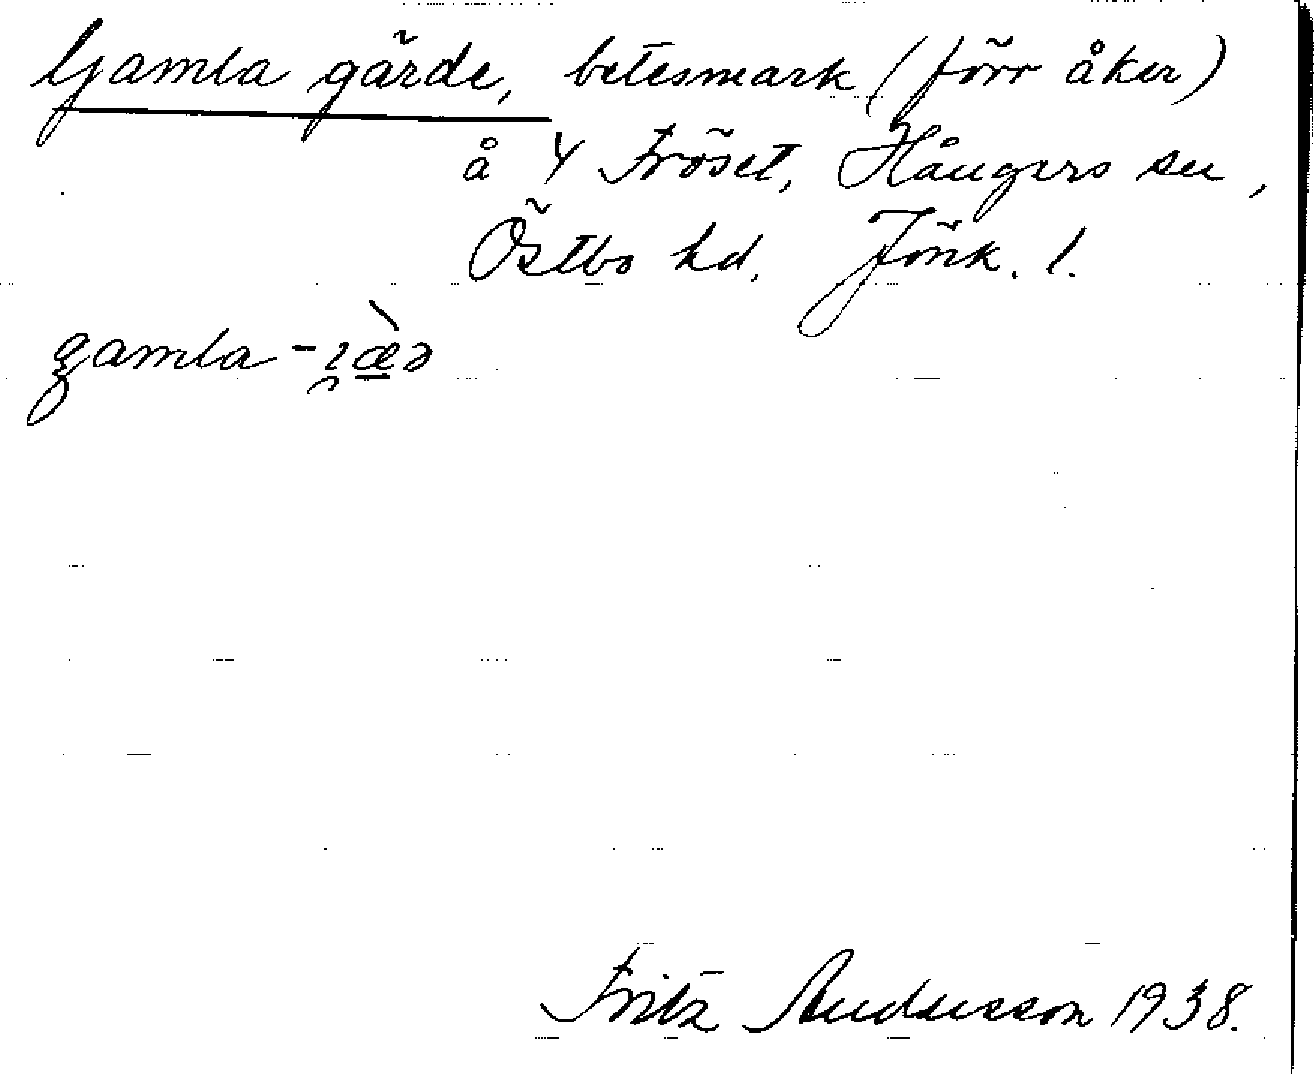 Gamla gärde, betesmark (förr åker)
å Y Fröset, Hångers sn,
Östbo hd, Jönk. l.
gamla -
Fritz Andersson 1938.